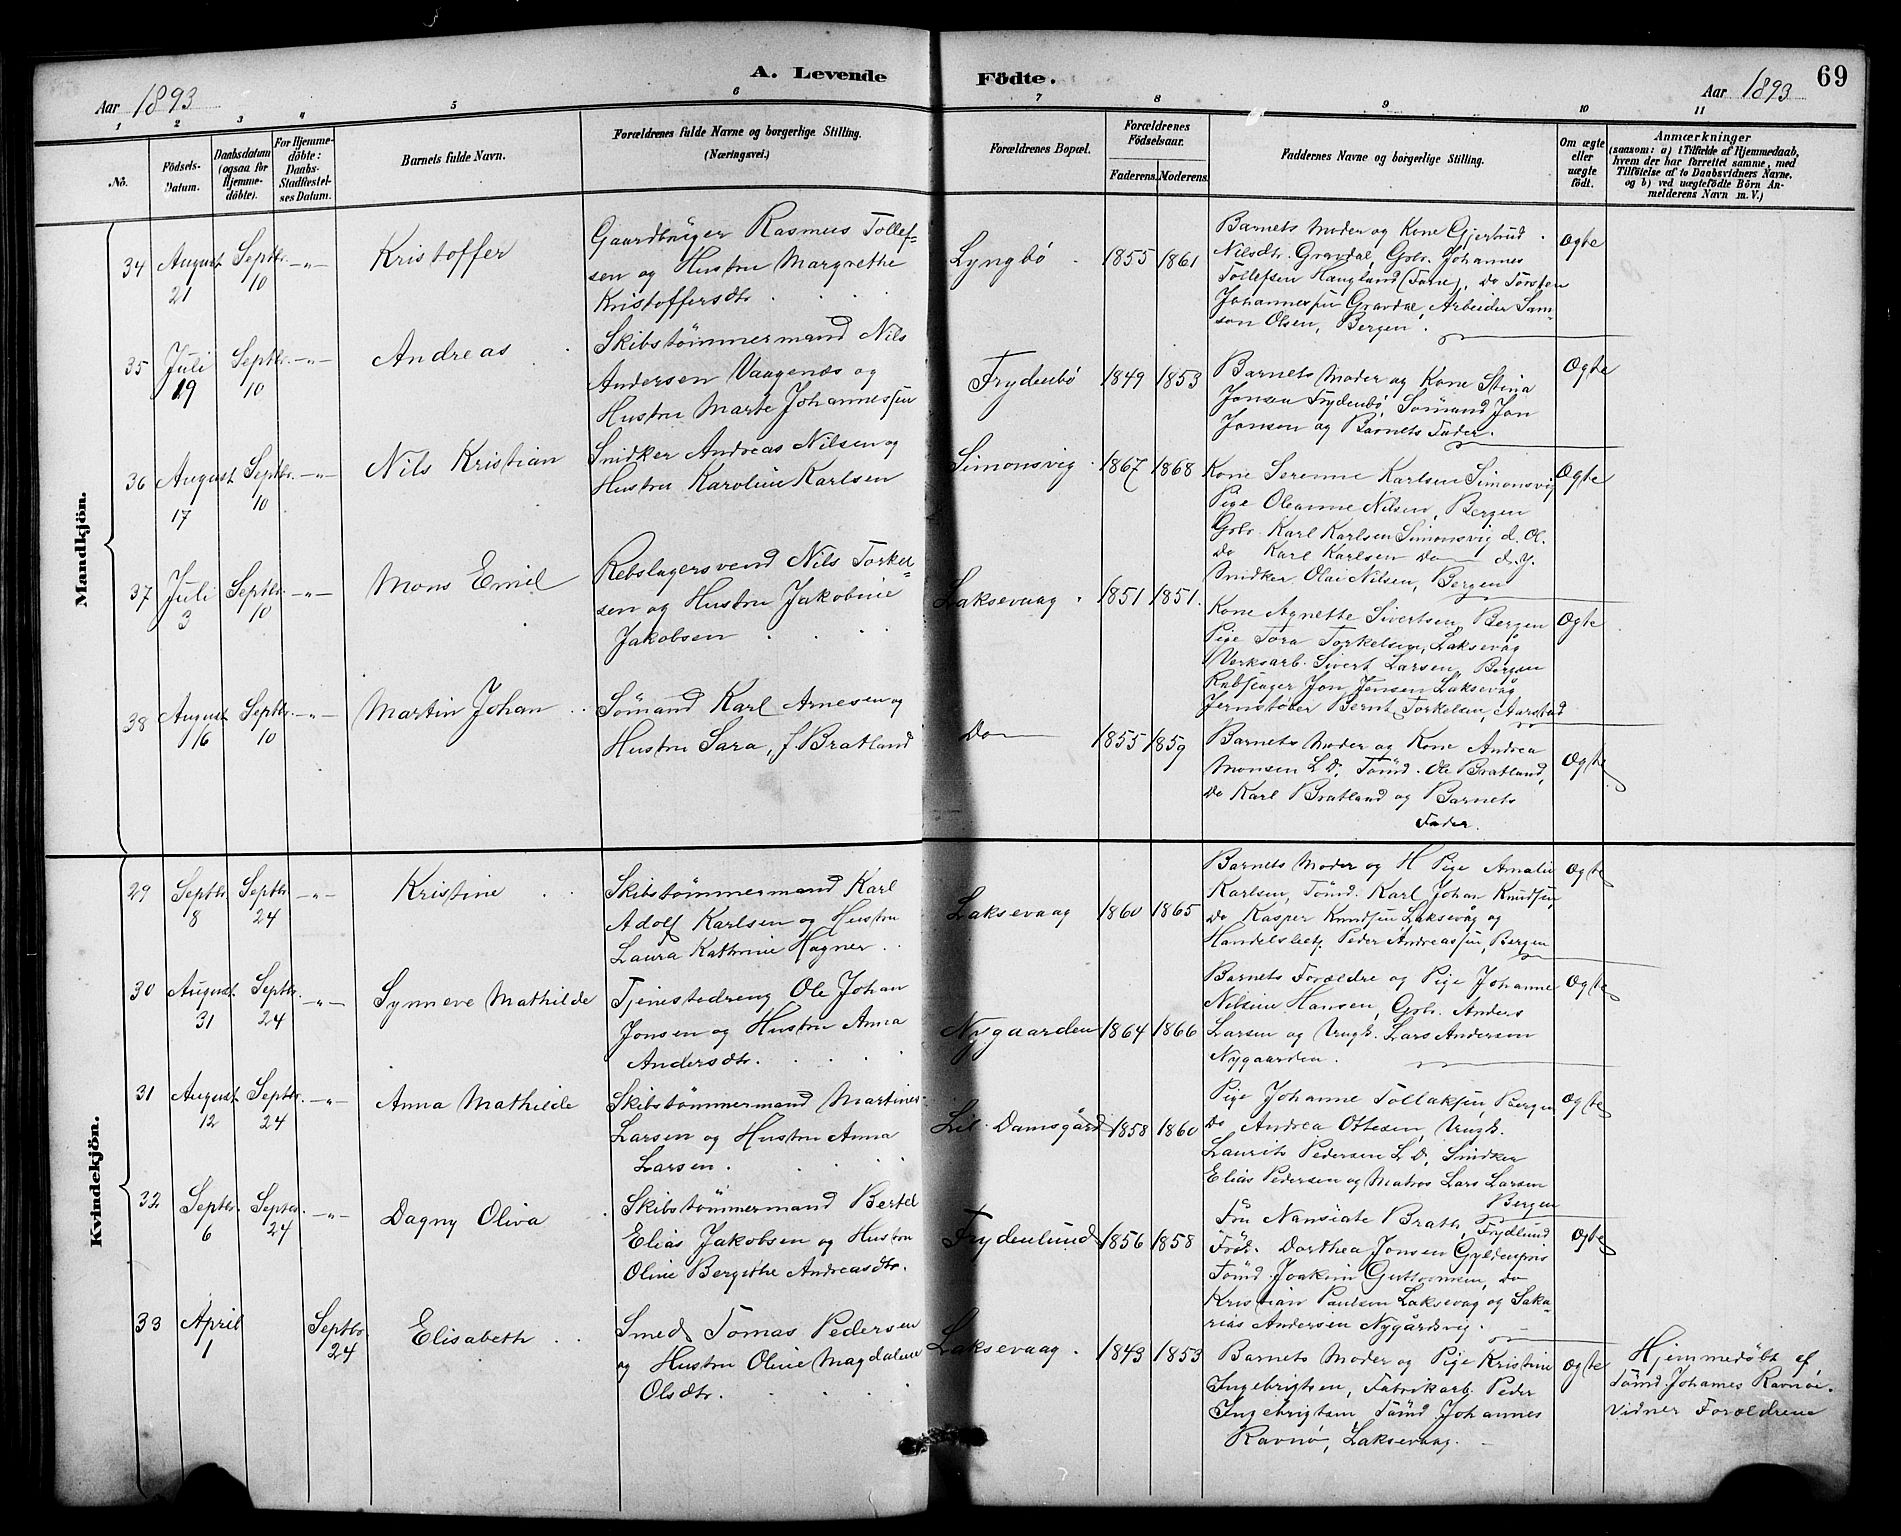 A. Levende Födte.
69
Aar 1893
Aar 1893
1 2 3 4 5 6 7 8 9 10 11
No.
Födsels-Datum.
Daabsdatum (ogsaa for Hjemme-döbte).
For Hjemme-döbte: Daabs-Stadfæstel-ses Datum.
Barnets fulde Navn.
Forældrenes fulde Navne og borgerlige Stilling. (Næringsvei.)
Forældrenes Bopæl.
Forældrenes Födselsaar.
Faderens. Moderens.
Faddernes Navne og borgerlige Stilling.
Om ægte eller uægte födt.
Anmærkninger
(saasom: a) i Tilfælde af Hjemmedaab,
hvem der har forrettet samme, med
Tilföielse af to Daabsvidners Navne.
og b) ved uægtefödte Börn An-
melderens Navn m. V.)
Mandkjön.
34 August 21 Septbr. 10 -"- Kristoffer
Gaardbruger Rasmus Tollef-
sen og Hustru Margrethe
Kristoffersdtr.
Lyngbö 1855 1861
Barnets Moder og Kone Gjertrud
Nilsdtr. Gravdal, Gbr. Johannes
Tollefsen Haugland (Fane), Do Torsten
Johannessen Gravdal, Arbeider Sam-
son Olsen, Bergen.
Ogte
35 Juli 19 Septbr. 10 -"- Andreas
Skibstömmermand Nils
Andersen Vaagenæs og
Hustru Marte Johannessen
Frydenbö 1849 1853
Barnets Moder og Kone Stina
Jonsen Frydenbö, Sömand Jon
Jonsen og Barnets Fader.
Ogte
36 August 17 Septbr. 10 -"- Nils Kristian
Snidker Andreas Nilsen og
Hustru Karoline Karlsen
Simonsvig 1867 1868
Kone Serenne Karlsen Simonsvig
Pige Oleanne Nilsen, Bergen
Gbr. Karl Karlsen Simonsvig d. Æ.
Do Karl Karlsen Do d. y.
Snidker Olai Nilsen, Bergen
Ogte
37 Juli 3 Septbr. 10 -"- Mons Emil
Rebslagersvend Nils Torkel-
sen og Hustru Jakobine
Jakobsen
Laksevaag 1851 1851.
Kone Agnette Sivertsen, Bergen
Pige Tora Torkelsen, Laksevåg
Værksarb. Sivert Larsen, Bergen
Jon Jensen Laksevåg
Jernstöber Bernt Torkelsen, Aarstad
Ogte
38 August 16 Septbr. 10 -"- Martin Johan
Sömand Karl Arnesen og
Hustru Sara, f. Bratland
Do 1855 1859
Barnets Moder og Kone Andrea
Monsen L D. Tömd. Ole Bratland,
Do Karl Bratland og Barnets
Fader.
Ogte
Kvindekjön.
29 Septbr. 8 Septbr. 24 -"- Kristine
Skibstömmermand Karl
Adolf Karlsen og Hustru
Laura Kathrine Hagner
Laksevaag 1860 1865
Barnets Moder og Pige Amalie
Karlsen, Tömd. Karl Johan Knudsen,
Do Kasper Knudsen Laksevåg og
Handelsbetj. Peder Andreassen, Bergen
Ogte
30 August 31 Septbr. 24 -"- Synneve Mathilde
Tjenestedreng Ole Johan
Jonsen og Hustru Anna
Andersdtr.
Nygaarden 1864 1866
Barnets Forældre og Pige Johanne
Nilsine Hansen, Gbr. Anders
Larsen og Ungk. Lars Andersen
Nygaarden.
Ogte
31 August 12 Septbr. 24 -"- Anna Mathilde
Skibstömmermand Martines
Larsen og Hustru Anna
Larsen.
Lil. Damsgård 1858 1860
Pige Johanne Tollaksen, Bergen
Do Andrea Ottesen, Ungk.
Laurits Pedersen L D, Snidker
Elias Pedersen og Matros Lars Larsen
Bergen
Ogte
32 Septbr. 6 Septbr. 24 -"- Dagny Oliva
Skibstömmermand Bertel
Elias Jakobsen og Hustru
Oline Bergithe Andreasdtr.
Frydenlund 1856 1858
Fru Nansiate Brath, Frydlund
Frök. Dorthea Jonsen Gyldenpris
Tömd. Joakim Guttormsen, Do
Kristian Paulsen Laksevag og Saka-
rias Andersen Nygårdsvig.
Ogte
33 April 1 Septbr. 24 Elisabeth
Smed Tomas Pedersen
og Hustru Oline Magdalene
Olsdtr.
Laksevaag. 1843 1853
Barnets Moder og Pige Kristine
Ingebrigtsen, Fabrikarb. Peder
Ingebrigtsen, Tömd. Johannes
Ravnö, Laksevaag.
Ogte
Hjemmedöbt af
Tömd. Johannes Ravnöi.
Vidner Forældrene